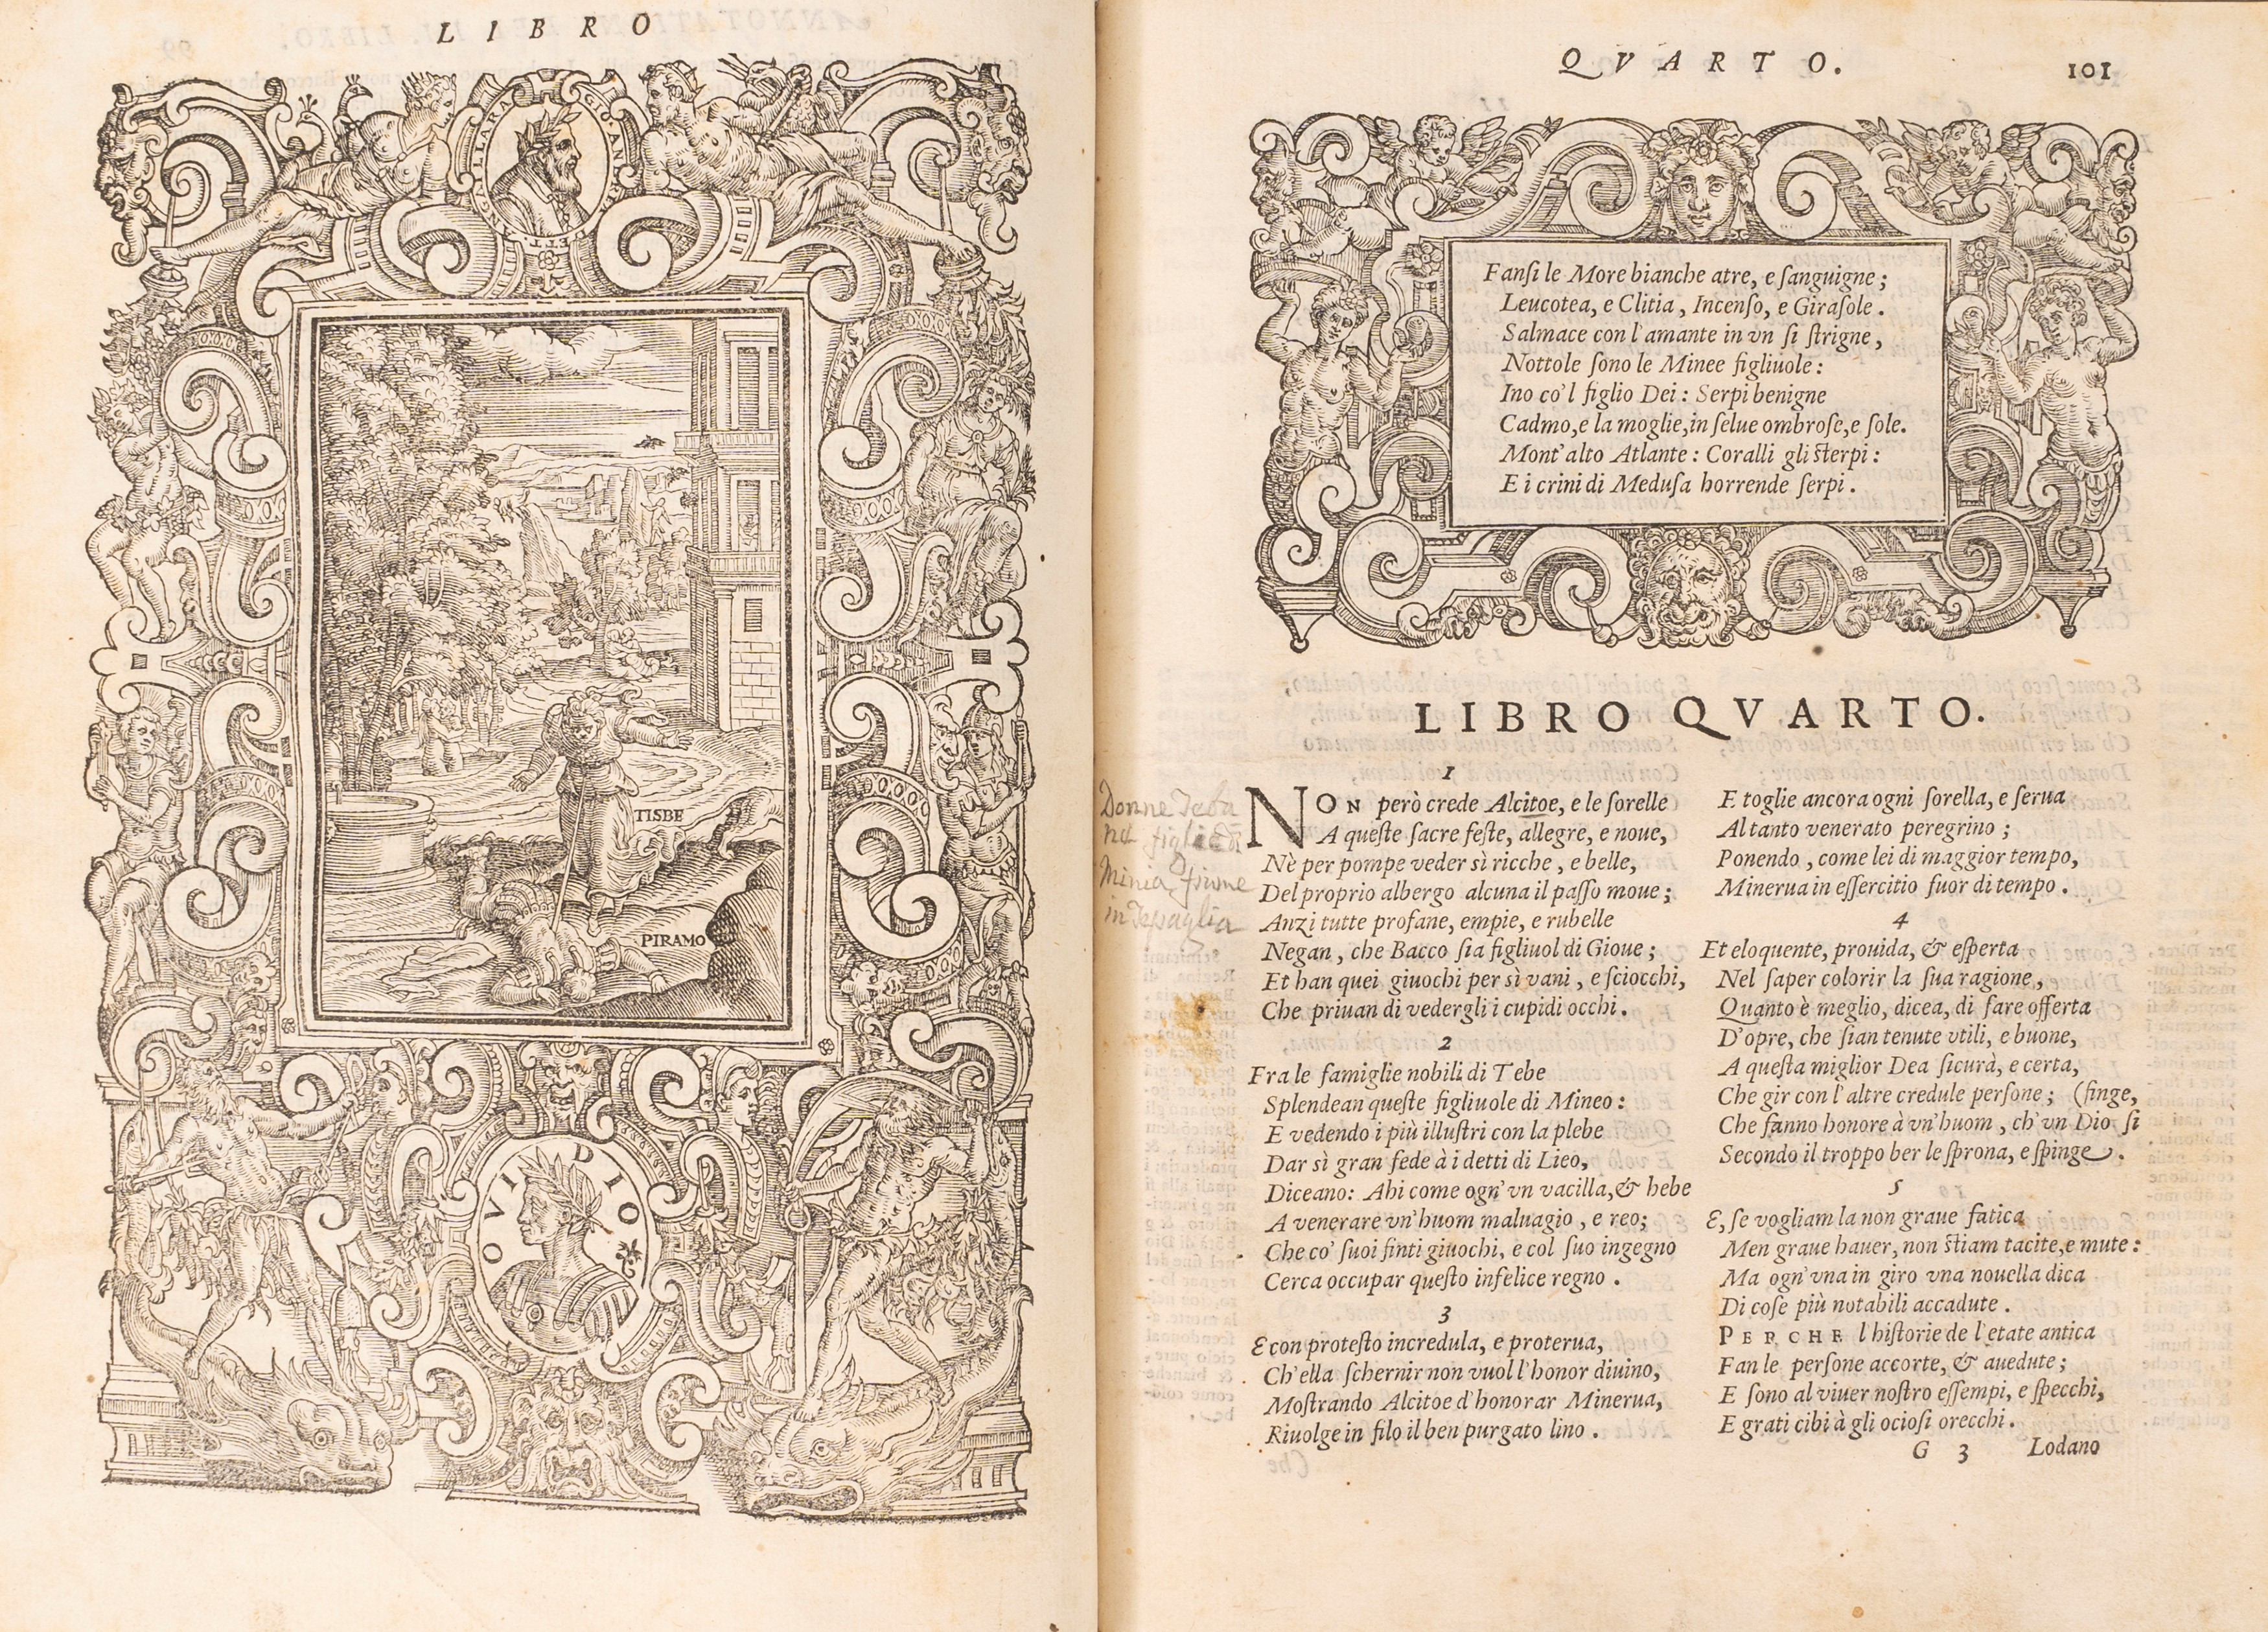 LIBRO
GIO. ANDR
OVIDIO
TISBE
PIRAMO
QVARTO.
101
Fanſi le More bianche atre, e ſanguigne;
Leucotea, e Clitia, Incenſo, e Giraſole.
Salmace con l'amante in vn ſi ſtrigne,
Nottole ſono le Minee figliuole:
Ino co'l figlio Dei: Serpi benigne
Cadmo, e la moglie, in ſelue ombroſe, e ſole.
Mont'alto Atlante: Coralli gli ſterpi:
E i crini di Meduſa horrende ſerpi.
LIBRO QVARTO.
1
NON però crede Alcitoe, e le ſorelle
A queſte ſacre feſte, allegre, e noue,
Nè per pompe veder sì ricche, e belle,
Del proprio albergo alcuna il paſſo moue;
Anzi tutte profane, empie, e rubelle
Negan, che Bacco ſia figliuol di Gioue;
Et han quei giuochi per sì vani, e ſciocchi,
Che priuan di vedergli i cupidi occhi.
2
Fra le famiglie nobili di Tebe
Splendean queſte figliuole di Mineo:
E vedendo i più illuſtri con la plebe
Dar sì gran fede à i detti di Lieo,
Diceano: Ahi come ogn'vn vacilla, & hebe
A venerare vn'huom maluagio, e reo;
Che co' ſuoi finti giuochi, e col ſuo ingegno
Cerca occupar queſto infelice regno.
3
E con proteſto incredula, e proterua,
Ch'ella ſchernir non vuol l'honor diuino,
Moſtrando Alcitoe d'honorar Minerua,
Riuolge in filo il ben purgato lino.
E toglie ancora ogni ſorella, e ſerua
Al tanto venerato peregrino;
Ponendo, come lei di maggior tempo,
Minerua in eſſercitio fuor di tempo.
4
Et eloquente, prouida, & eſperta
Nel ſaper colorir la ſua ragione,
Quanto è meglio, dicea, di fare offerta
D'opre, che ſian tenute vtili, e buone,
A queſta miglior Dea ſicurà, e certa,
Che gir con l'altre credule perſone; (finge,
Che fanno honore à vn'huom, ch'vn Dio ſi
Secondo il troppo ber le ſprona, e ſpinge.
5
E, ſe vogliam la non graue fatica
Men graue hauer, non ſtiam tacite, e mute:
Ma ogn'vna in giro vna nouella dica
Di coſe più notabili accadute.
PERCHE l'hiſtorie de l'etate antica
Fan le perſone accorte, & auedute;
E ſono al viuer noſtro eſſempi, e ſpecchi,
E grati cibi à gli ocioſi orecchi.
G 3 Lodano
Donne Teba
ne figlie di
Minia fiume
in Tessaglia